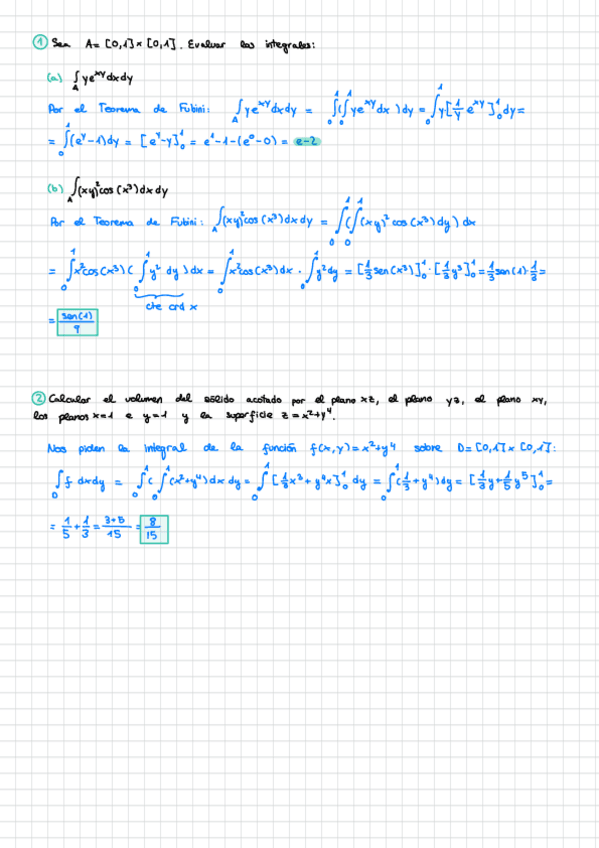 ① Sea A = [0,1] × [0,1]. Evaluar las integrales:
(a) ∫_A y e^{xy} dx dy
Por el Teorema de Fubini: ∫_A y e^{xy} dx dy = ∫_0^1 (∫_0^1 y e^{xy} dx) dy = ∫_0^1 y [1/y e^{xy}]_0^1 dy =
= ∫_0^1 (e^y - 1) dy = [e^y - y]_0^1 = e^1 - 1 - (e^0 - 0) = e-2
(b) ∫_A (xy)^2 cos(x^3) dx dy
Por el Teorema de Fubini: ∫_A (xy)^2 cos(x^3) dx dy = ∫_0^1 (∫_0^1 (xy)^2 cos(x^3) dy) dx
= ∫_0^1 x^2 cos(x^3) (∫_0^1 y^2 dy) dx = ∫_0^1 x^2 cos(x^3) dx · ∫_0^1 y^2 dy = [1/3 sen(x^3)]_0^1 · [1/3 y^3]_0^1 = 1/3 sen(1) · 1/3 =
cte crd x
= sen(1)/9
② Calcular el volumen del sólido acotado por el plano xz, el plano yz, el plano xy,
los planos x=1 e y=1 y la superficie z = x^2 + y^4.
Nos piden la integral de la función f(x,y) = x^2 + y^4 sobre D = [0,1] × [0,1]:
∫_D f dx dy = ∫_0^1 (∫_0^1 (x^2 + y^4) dx dy = ∫_0^1 [1/3 x^3 + y^4 x]_0^1 dy = ∫_0^1 (1/3 + y^4) dy = [1/3 y + 1/5 y^5]_0^1 =
= 1/5 + 1/3 = 3+5/15 = 8/15